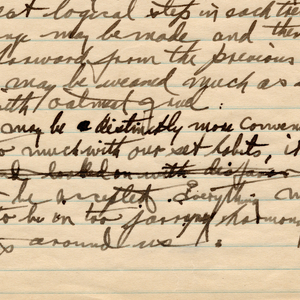 eat logical step in each tre
nge may be made and then
forward from the previous
may be weaned much as a
with oatmeal gruel :
may be a distinctly more conven
o much with our set habits, it
looked on with disfavor
be . Everything m
to be on too jarring harmon
around us .